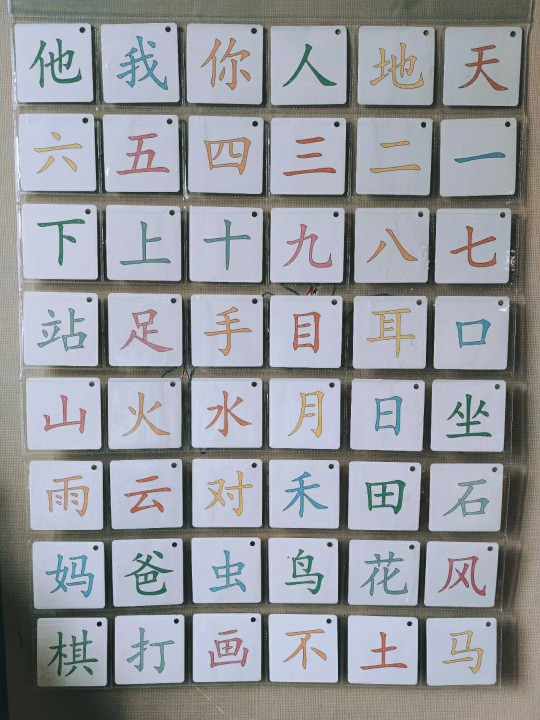 他 我 你 人 地 天
六 五 四 三 二 一
下 上 十 九 八 七
站 足 手 目 耳 口
山 火 水 月 日 坐
雨 云 对 禾 田 石
妈 爸 虫 鸟 花 风
棋 打 画 不 土 马